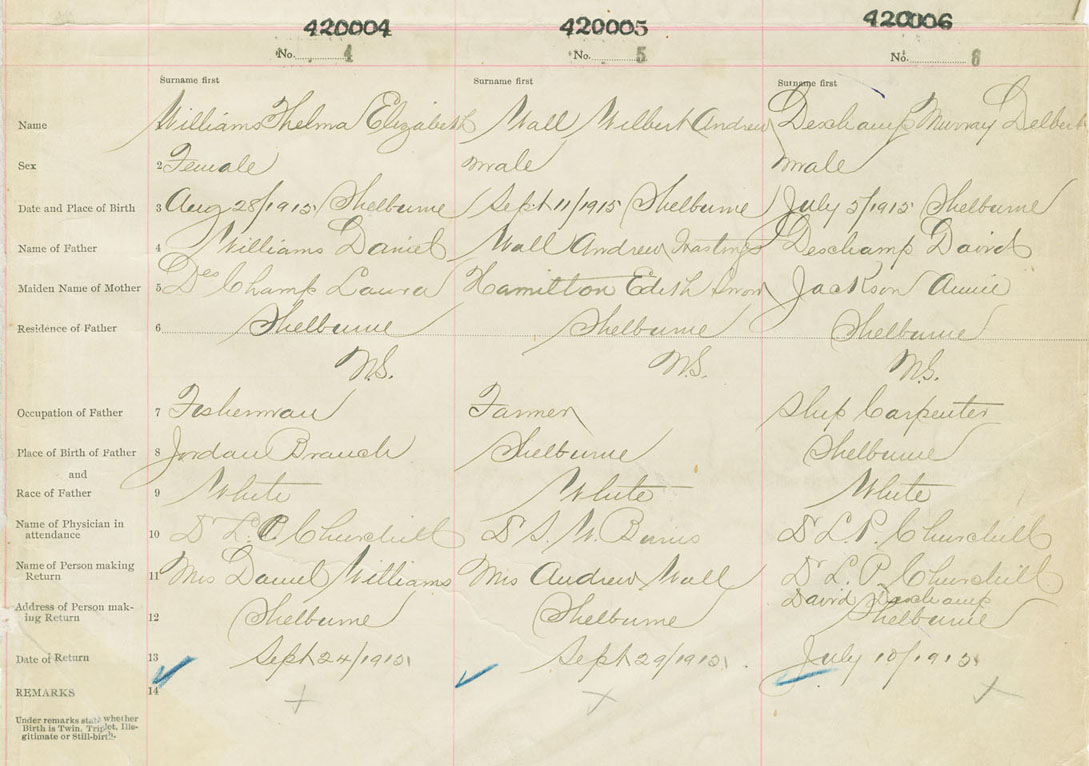 420004 420005 420006
No. 4 No. 5 No. 6
Surname first Surname first Surname first
Name Williams Thelma Elizabeth Wall Wilbert Andrew Deschamp Murray Delbert
Sex 2 Female Male Male
Date and Place of Birth 3 Aug 28/1915 Shelburne Sept 11/1915 Shelburne July 5/1915 Shelburne
Name of Father 4 Williams Daniel Wall Andrew Hastings Deschamp David
Maiden Name of Mother 5 DesChamp Laura Hamilton Edith Jackson Annie
Residence of Father 6 Shelburne Shelburne Shelburne
N.S. N.S. N.S.
Occupation of Father 7 Fisherman Farmer Ship Carpenter
Place of Birth of Father 8 Jordan Branch Shelburne Shelburne
and
Race of Father 9 White White White
Name of Physician in
attendance 10 Dr L. P. Churchill Dr S. W. Dr L. P. Churchill
Name of Person making
Return 11 Mrs Daniel Williams Mrs Andrew Wall Dr L. P. Churchill
David Deschamp
Address of Person mak-
ing Return 12 Shelburne Shelburne Shelburne
Date of Return 13 Sept 24/1915 Sept 29/1915 July 10/1915
REMARKS 14
Under remarks state whether
Birth is Twin, Triplet, Ille-
gitimate or Still-birth.